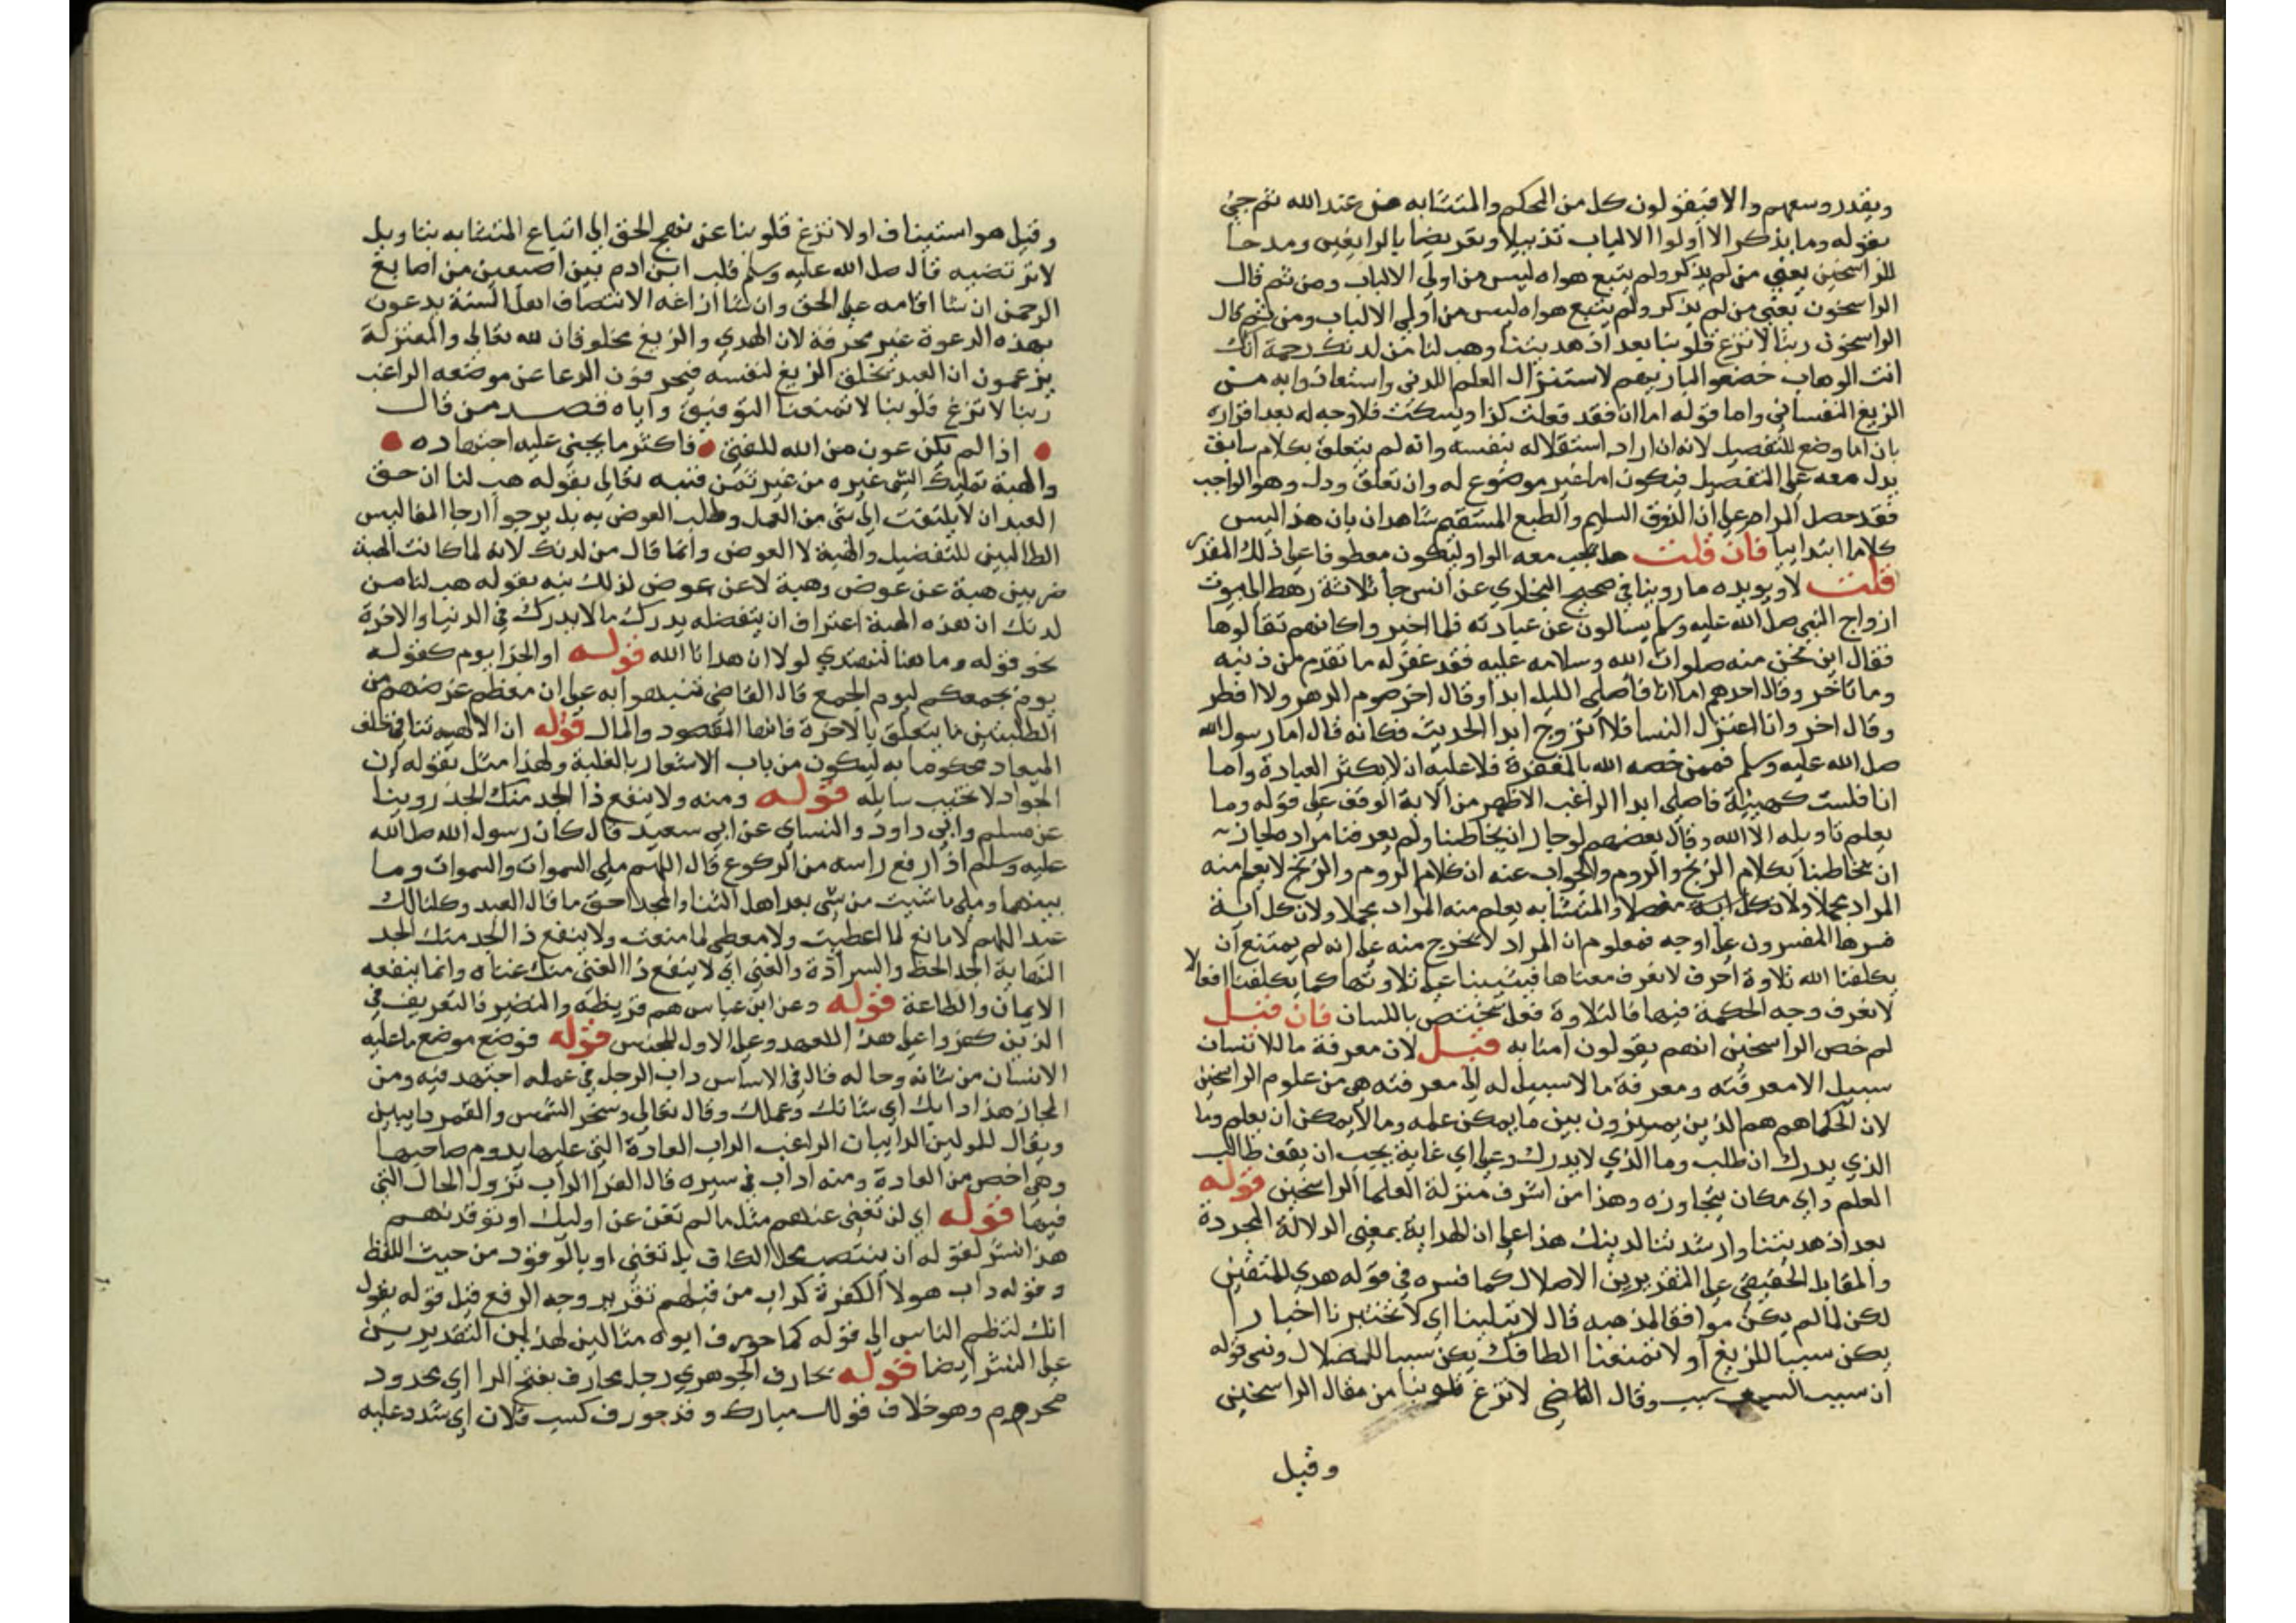 وبقدر وسعهم والا فيقولون كل من المحكم والمتشابه من عند الله ثم جيء
بقوله وما يذكر الا أولوا الالباب تذييلا وتعريضا بالزايغين ومدحا
للراسخين يعني من لم يذكر ولم يتبع هواه ليس من اولي الالباب ومن ثم قال
الراسخون يعني من لم يذكر ولم يتبع هواه ليس من اولي الالباب ومن ثم قال
الراسخون ربنا لا تزغ قلوبنا بعد اذ هديتنا وهب لنا من لدنك رحمة انك
انت الوهاب خضعوا لباريهم لاستنزال العلم اللدني واستعاذوا به من
الزيغ النفساني واما قوله اما انا فقد فعلت كذا ويسكت فلا وجه له بعد اقراره
بان اما وضع للتفصيل لانه ان اراد استقلاله بنفسه وانه لم يتعلق بكلام سابق
يدل معه على التفصيل فيكون اما غير موضوع له وان تعلق ودل وهو الواجب
فقد حصل المرام على ان الذوق السليم والطبع المستقيم شاهدان بان هذا ليس
كلاما ابتداييا فان قلت هل يجب معه الواو ليكون معطوفا على ذلك المقدر
قلت لا ويويده ما روينا في صحيح البخاري عن انس جا ثلاثة رهط الى بيوت
ازواج النبي صلى الله عليه وسلم يسالون عن عبادته فلما اخبروا كانهم تقالوها
فقال اين نحن منه صلوات الله وسلامه عليه فقد غفر له ما تقدم من ذنبه
وما تاخر وقال احدهم اما انا فأصلي الليل ابدا وقال اخر اصوم الدهر ولا افطر
وقال اخر وانا اعتزل النسا فلا اتزوج ابدا الحديث فكانه قال اما رسول الله
صلى الله عليه وسلم فممن خصه الله بالمغفرة فلا عليه ان لا يكثر العبادة واما
انا فلست كهيئته فاصلي ابدا الراغب الاظهر من الاية الوقف على قوله وما
يعلم تاويله الا الله وقال بعضهم لو جاز ان يخاطبنا ولم يعرفنا مراده لجاز
ان يخاطبنا بكلام الزنج والروم والجواب عنه ان كلام الروم والزنج لا يعلم منه
المراد مجملا ولا مفصلا والمتشابه يعلم منه المراد مجملا ولان كل اية
فسرها المفسرون على اوجه فمعلوم ان المراد لا يخرج منه على انه لم يمتنع ان
يكلفنا الله تلاوة احرف لا نعرف معناها فيثيبنا على تلاوتها كما يكلفنا افعالا
لا نعرف وجه الحكمة فيها فالتلاوة فعل يختص باللسان فان قيل
لم خص الراسخين انهم يقولون امنا به قيل لان معرفة ما للانسان
سبيل الا معرفته ومعرفة ما لا سبيل له الى معرفته هي من علوم الراسخين
لان الحكما هم هم الذين يميزون بين ما يمكن علمه وما لا يمكن ان يعلم وما
الذي يدرك ان طلب وما الذي لا يدرك وعلى اي غاية يجب ان يقف طالب
العلم واي مكان يتجاوزه وهذا من اشرف منزلة العلما الراسخين قوله
بعد اذ هديتنا وارشدتنا لدينك هذا على ان الهداية بمعنى الدلالة المجردة
والمقابل الحقيقي على التقديرين الاضلال كما فسره في قوله هدي للمتقين
لكن لما لم يكن موافقا لمذهبه قال لا تبلينا اي لا تختبرنا اختبارا
يكن سببا للزيغ أو لا تمنعنا الطافك يكن سببا للضلال ونمى قوله
ان سبب السبب سبب وقال القاضي لا تزغ قلوبنا من مقال الراسخين
وقيل
وقيل هو استيناف اولا تزغ قلوبنا عن نهج الحق الى اتباع المتشابه بتاويل
لا ترتضيه قال صلى الله عليه وسلم قلب ابن ادم بين اصبعين من اصابع
الرحمن ان شا اقامه على الحق وان شا ازاغه الانتصاف اهل السنة يدعون
بهذه الدعوة غير محرفة لان الهدي والزيغ مخلوقان لله تعالى والمعتزلة
يزعمون ان العبد يخلق الزيغ لنفسه فيحرفون الدعا عن موضعه الراغب
ربنا لا تزغ قلوبنا لا تمنعنا التوفيق واياه قصد من قال
اذا لم يكن عون من الله للفتى فاكثر ما يجني عليه اجتهاده
والهبة تمليك الشي غيره من غير ثمن فنبه تعالى بقوله هب لنا ان حق
العبد ان لا يلتفت الى شي من العمل وطلب العوض به بل يرجوا ارجا المفاليس
الطالبين للتفضيل والهبة لا العوض وانما قال من لدنك لانه لما كانت الهبة
ضربين هبة عن عوض وهبة لا عن عوض لذلك نبه بقوله هب لنا من
لدنك ان هذه الهبة اعتراف ان بتفضله يدرك ما لا يدرك في الدنيا والاخرة
نحو قوله وما كنا لنهتدي لولا ان هدانا الله قوله او الجزا يوم كقوله
يوم يجمعكم ليوم الجمع قال القاضي نبهوا به على ان معظم غرضهم من
الطلبتين ما يتعلق بالاخرة فانها المقصود والمال قوله ان الالهية تنافي خلف
الميعاد محكوما به ليكون من باب الاشعار بالغلبة ولهذا مثل بقوله ان
الجواد لا يخيب سايله قوله ومنه ولا ينفع ذا الجد منك الجد روينا
عن مسلم وابي داود والنساي عن ابي سعيد قال كان رسول الله صلى الله
عليه وسلم اذا رفع راسه من الركوع قال اللهم ملي السموات والسموات وما
بينهما وملي ما شيت من شي بعد اهل الثنا والمجد احق ما قال العبد وكلنا لك
عبد اللهم لا مانع لما اعطيت ولا معطي لما منعت ولا ينفع ذا الجد منك الجد
النهاية الجد الحظ والسعادة والغني اي لا ينفع ذا الغنى منك غناه وانما ينفعه
الايمان والطاعة قوله وعن ابن عباس هم قريظة والنضير فالتعريف في
الذين كفروا على هذا للعهد وعلى الاول للجنس قوله فوضع موضع ما عليه
الانسان من شانه وحاله قال في الاساس داب الرجل في عمله اجتهد فيه ومن
المجاز هذا دابك اي شانك وعملك وقال تعالى وسخر الشمس والقمر دايبين
ويقال للملوين الدايبان الراغب الداب العادة التي عليها يدوم صاحبها
وهي اخص من العادة ومنه اداب في سيره قال الفرا الداب تزول الحال التي
فيها قوله اي لن تغني عنهم مثل ما لم تغن عن اوليك او توقد بهم
هذا نشر لقوله ان ينتصب محل الكاف بلن تغني او بالوقود من حيث اللفظ
وقوله داب هولا الكفرة كداب من قبلهم تقرير وجه الرفع قبل قوله يقول
انك لتظلم الناس الى قوله كما حورف ابوه مثالين لهذين التقديرين
على النشر ايضا قوله محارف الجوهري رجل محارف بفتح الرا اي محدود
محروم وهو خلاف قولك مبارك وقد حورف كسب فلان اي شدد عليه